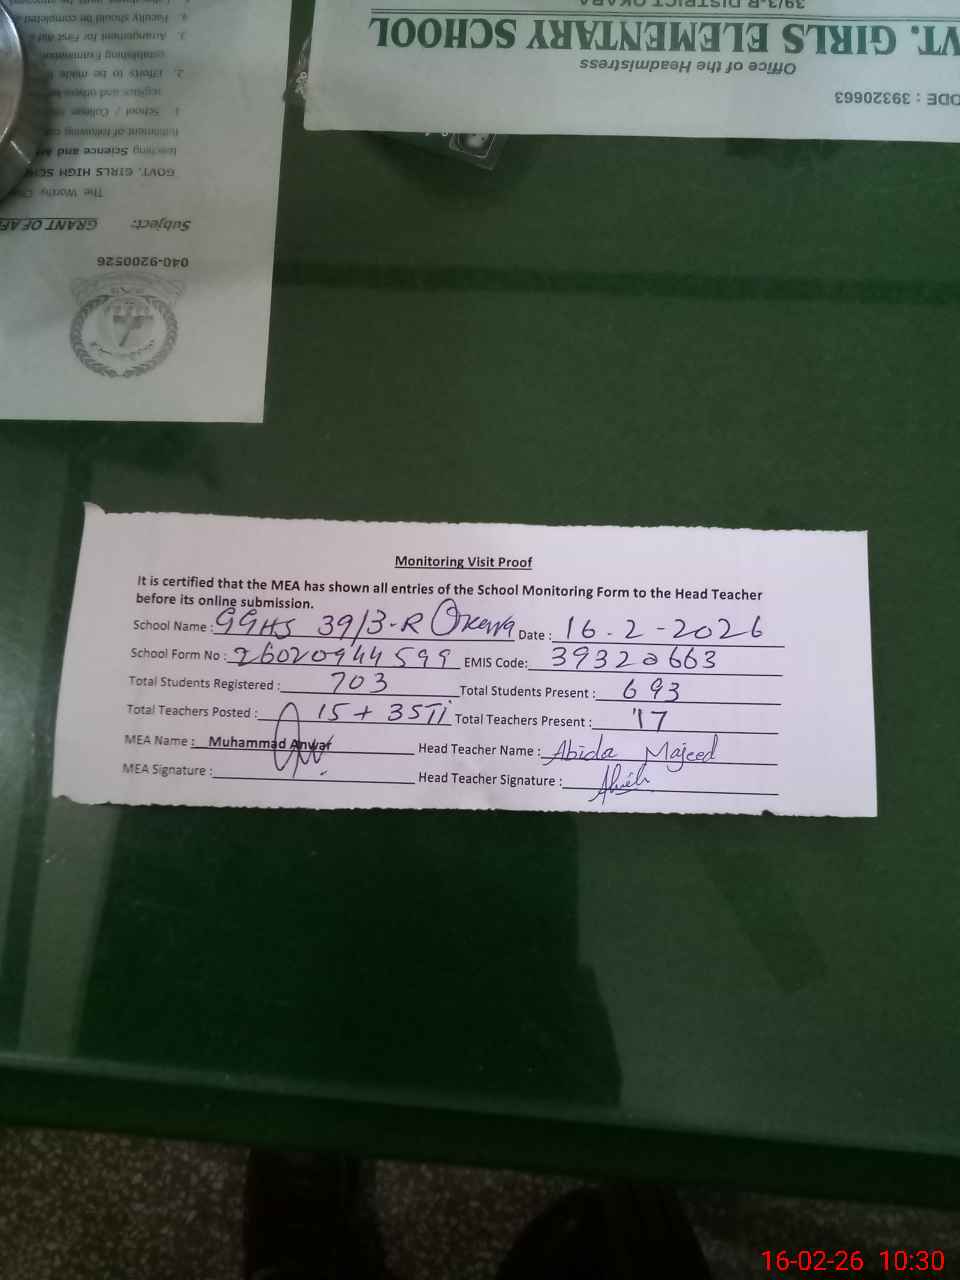 39/3-R DISTRICT OKARA
VT. GIRLS ELEMENTARY SCHOOL
Office of the Headmistress
ODE : 39320663
4. Faculty should be completed
3. Arrangement for First aid
establishing Examination
2. Efforts to be made
registers and others
1. School / College
fulfillment of following
teaching Science and
GOVT. GIRLS HIGH
The Worthy
Subject: GRANT OF
040-9200526
Monitoring Visit Proof
It is certified that the MEA has shown all entries of the School Monitoring Form to the Head Teacher
before its online submission.
School Name : GGHS 39/3-R Okara Date : 16-2-2026
School Form No : 26020944599 EMIS Code: 39320663
Total Students Registered : 703 Total Students Present : 693
Total Teachers Posted : 15 + 3STI Total Teachers Present : 17
MEA Name : Muhammad Anwar Head Teacher Name : Abida Majeed
MEA Signature : Head Teacher Signature :
16-02-26 10:30